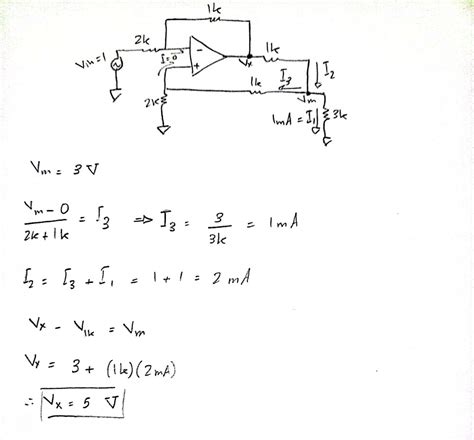 1k
2k
Vin=1
I=0
-
+
Vx
1k
I2
1k
I3
Vm
2k
1mA = I1
3k
Vm = 3 V
Vm - 0
2k + 1k
= I3 ⇒ I3 = 3
3k
= 1 mA
I2 = I3 + I1 = 1 + 1 = 2 mA
Vx - V1k = Vm
Vx = 3 + (1k)(2mA)
∴ Vx = 5 V